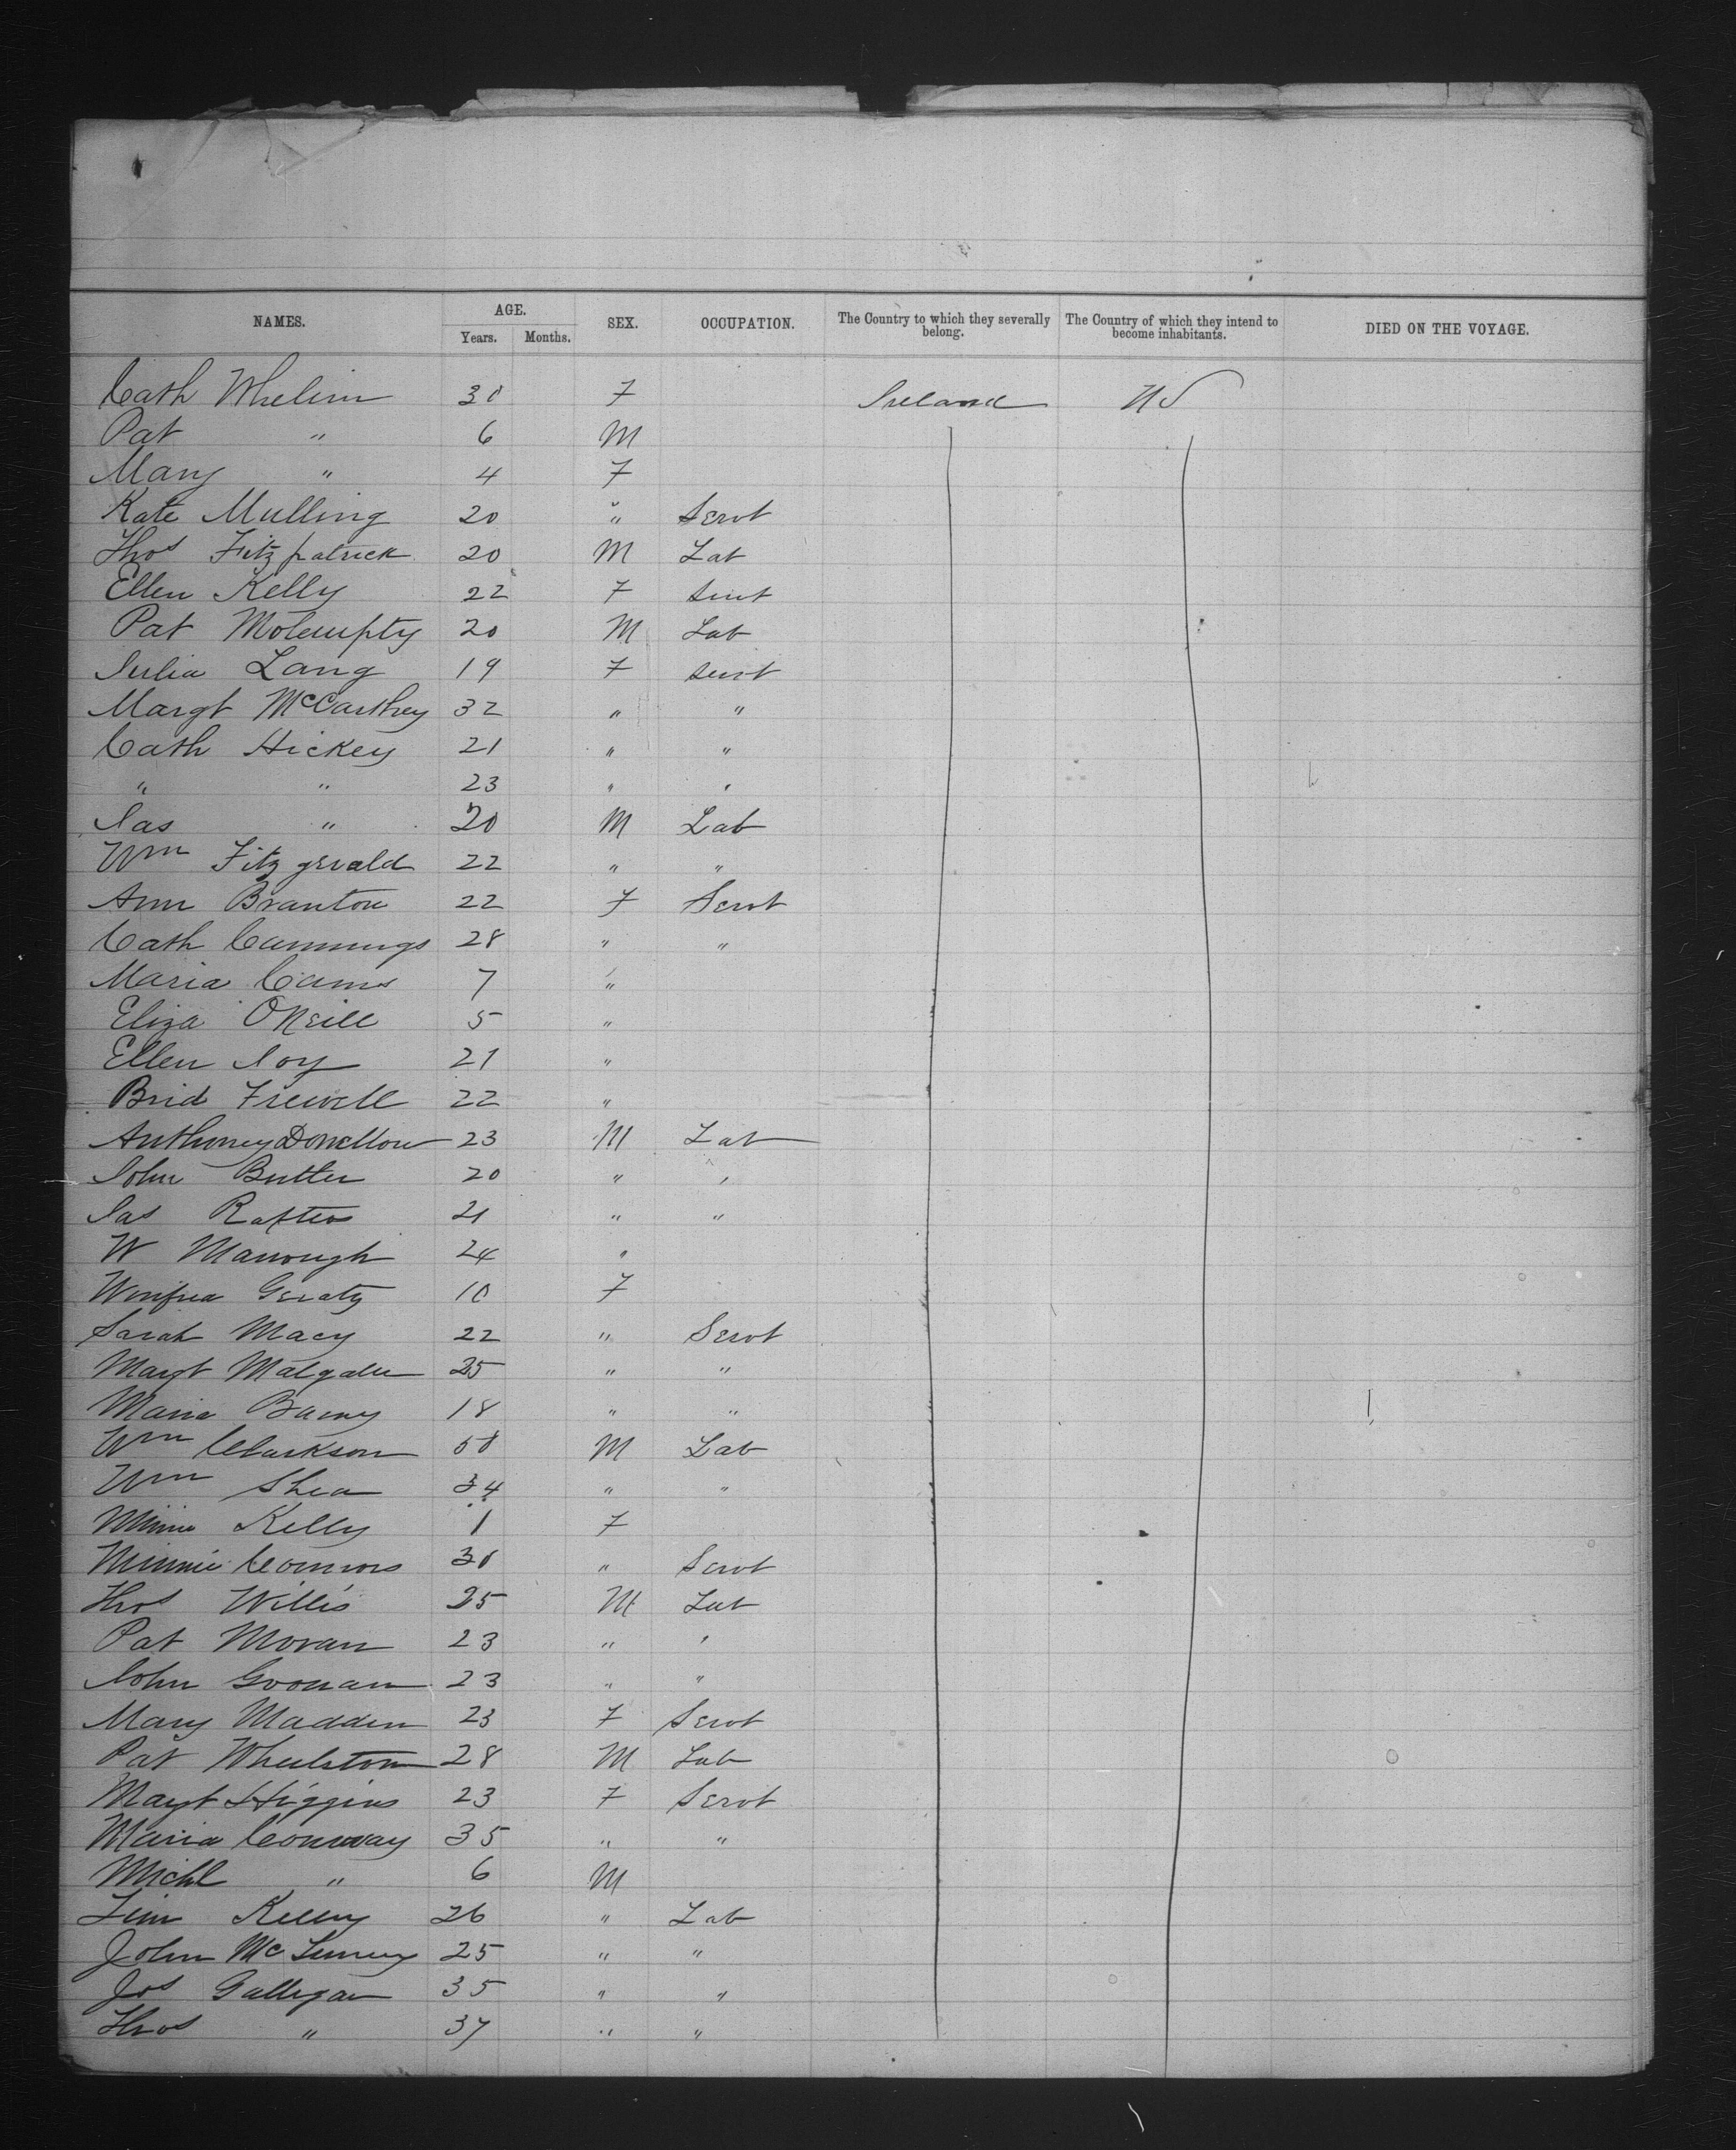 NAMES. AGE. Years. Months. SEX. OCCUPATION. The Country to which they severally belong. The Country of which they intend to become inhabitants. DIED ON THE VOYAGE.
Cath Whelin 30 F Ireland US
Pat " 6 M
Mary " 4 F
Kate Mulling 20 " Servt
Thos Fitzpatrick 20 M Lab
Ellen Kelly 22 F Servt
Pat 20 M Lab
Julia Lang 19 F Servt
Margt McCarthey 32 " "
Cath Hickey 21 " "
" " 23 " "
Jas " 20 M Lab
Wm Fitzgerald 22 " "
Ann Branton 22 F Servt
Cath Cummings 28 " "
Maria Cams 7 "
Eliza ONeill 5 "
Ellen Joy 21 "
Brid Frewell 22 "
Anthoney Donellon 23 M Lab
John Butler 20 " "
Jas 21 " "
W Manough 24 "
Winifred Geraty 10 F
Sarah Macy 22 " Servt
Margt 25 " "
Maria 18 " "
Wm Clarkson 50 M Lab
Wm Shea 34 " "
Minnie Kelly 1 F
Minnie Connors 30 " Servt
Thos Willis 25 M Lab
Pat Moran 23 " "
John Goonan 23 " "
Mary Madden 23 F Servt
Pat Wheelston 28 M Lab
Margt Higgins 23 F Servt
Maria Conway 35 " "
Michl " 6 M
Tim Kelley 26 " Lab
John Mc 25 " "
Jos Galligan 35 " "
Thos " 37 " "